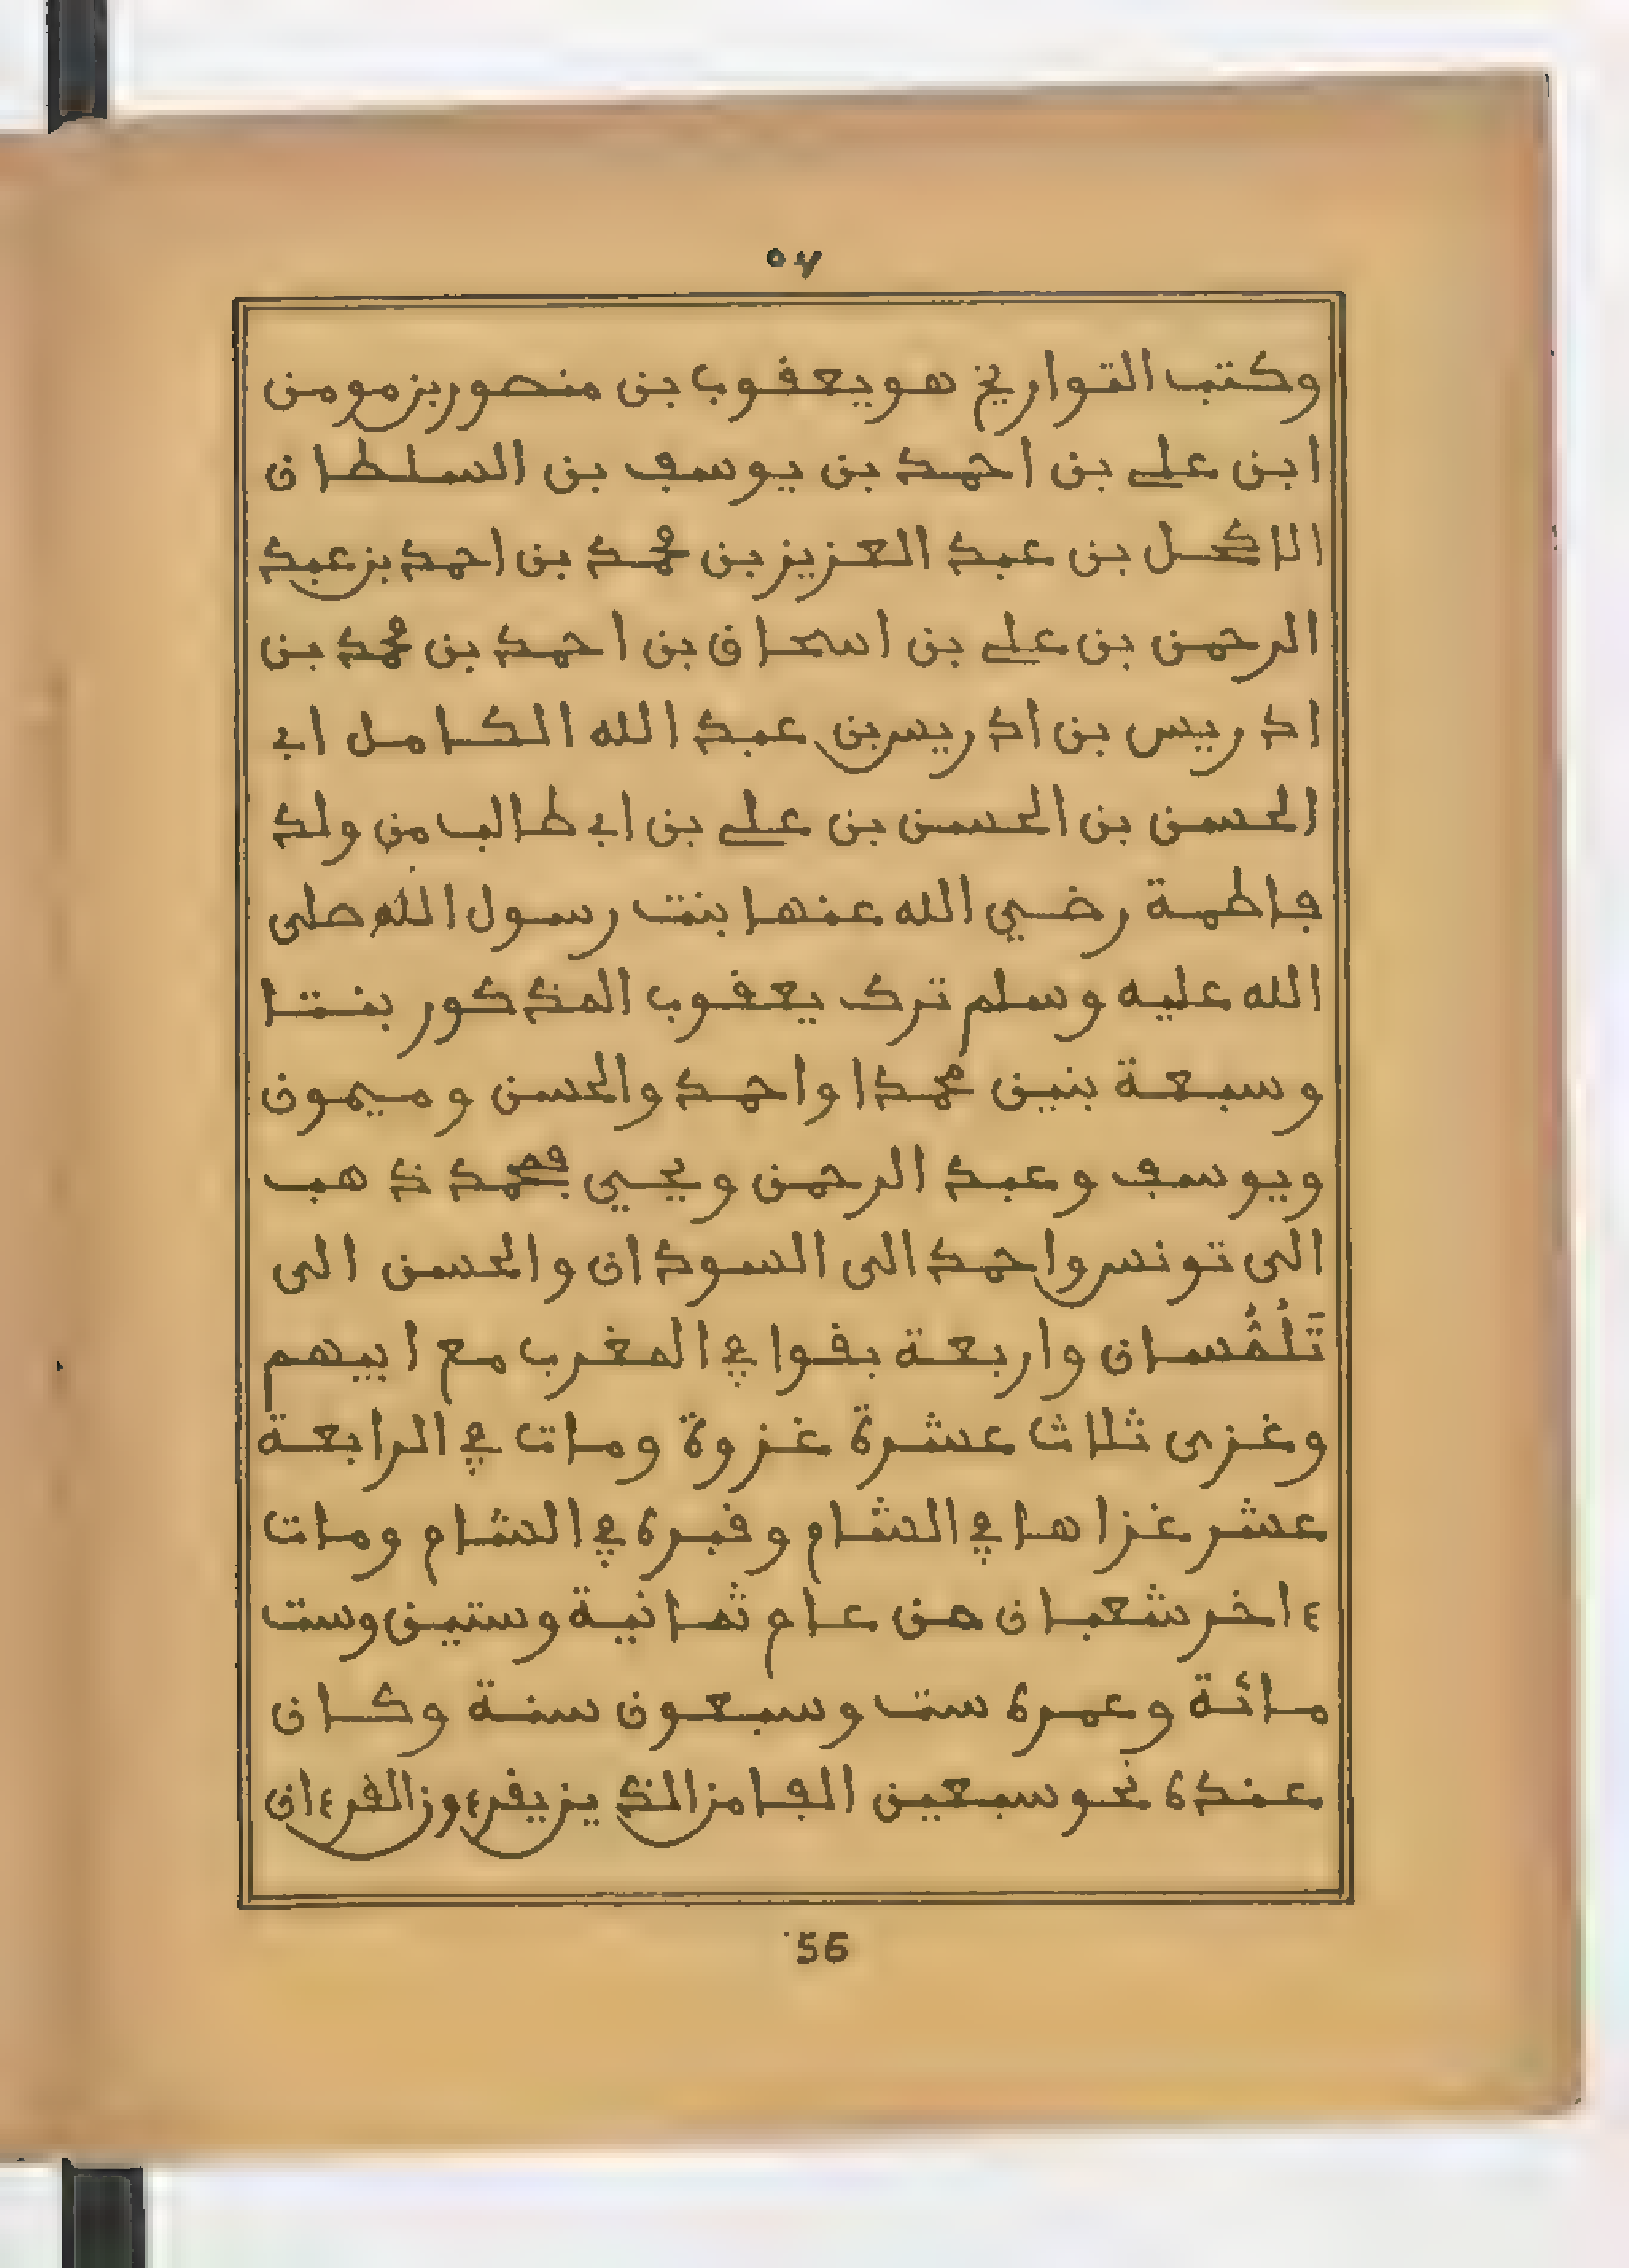 ٥٦
وكتب التواريخ هو يعقوب بن منصور بن مومن
ابن علي بن احمد بن يوسف بن السلطان
الاكحل بن عبد العزيز بن محمد بن احمد بن عبد
الرحمن بن علي بن اسحاق بن احمد بن محمد بن
ادريس بن ادريس بن عبد الله الكامل ابي
الحسن بن الحسن بن علي بن ابي طالب من ولد
فاطمة رضي الله عنها بنت رسول الله صلى
الله عليه وسلم ترك يعقوب المذكور بنتا
وسبعة بنين محمدا واحمد والحسن وميمون
ويوسف وعبد الرحمن ويحيي فمحمد ذهب
الى تونس واحمد الى السودان والحسن الى
تَلْمْسان واربعة بقوا في المغرب مع ابيهم
وغزى ثلاث عشرة غزوة ومات في الرابعة
عشر غزاها في الشام وقبره في الشام ومات
ءاخر شعبان من عام ثمانية وستين وست
مائة وعمره ست وسبعون سنة وكان
عنده نحو سبعين الفا من الذين يقرءون القرءان
56